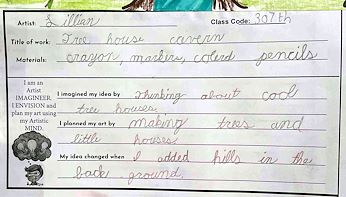 Artist: Lillian Class Code: 307th
Title of work: Tree house cavern
Materials: crayon, markers, colerd pencils
I am an
Artist
IMAGINEER.
I ENVISION and
plan my art using
my Artistic
MIND.
I imagined my idea by Thinking about cool
tree houses.
I planned my art by making trees and
little houses
My idea changed when I added hills in the
back ground.